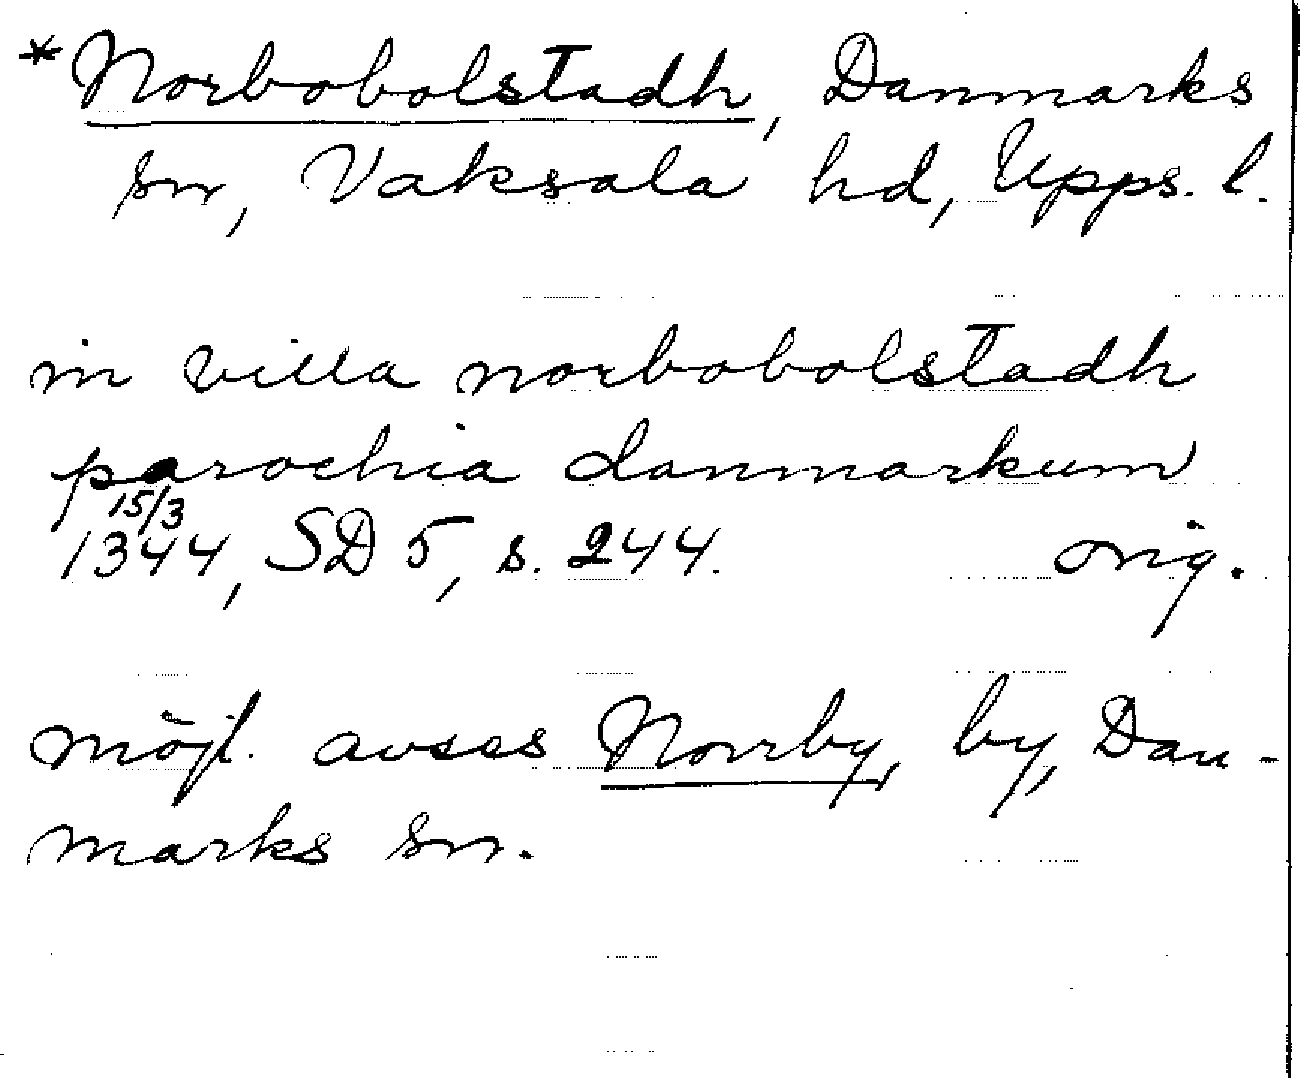 *Norbobolstadh, Danmarks
sn, Vaksala hd, Upps. l.
in villa norbobolstadh
parochia danmarkum
15/3
1344, SD 5, s. 244. orig.
möjl. avses Norrby, by, Dan-
marks sn.